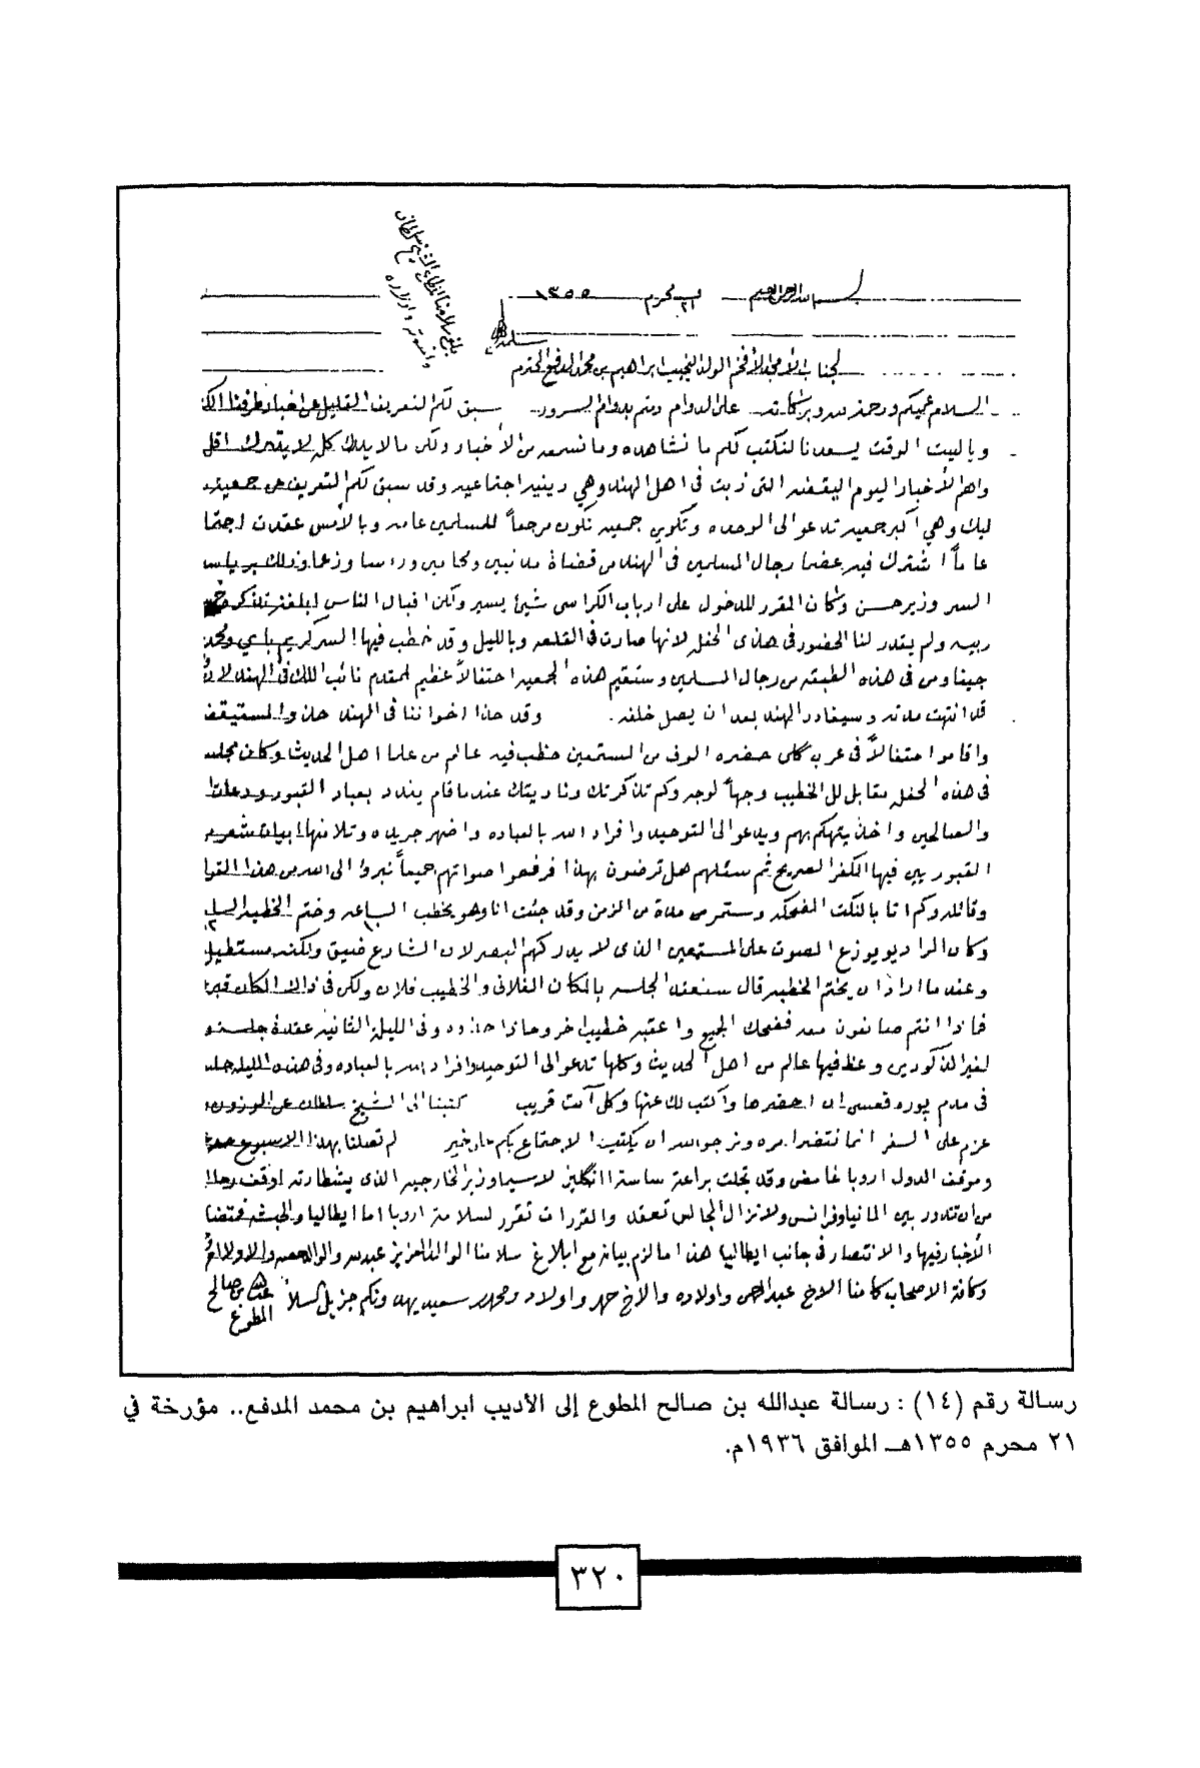 بلغ سلامنا الشيخ سلطان
واخوته واولاده
بسم الله الرحمن الرحيم في ٢١ محرم ١٣٥٥
لجناب الأمجد الأفخم الولد النجيب ابراهيم بن محمد المدفع المحترم سلمه الله
السلام عليكم ورحمة الله وبركاته على الدوام ودمتم بدوام السرور سبق لكم التعريف القليل عن اخبار طرفنا
وياليت الوقت يسعدنا لنكتب لكم ما نشاهده وما نسمعه من الأخبار ولكن ما لا يدرك كله لا يترك اقله
واهم الأخبار اليوم اليقظه التي دبت في اهل الهند وهي دينيه اجتماعيه وقد سبق لكم التعريف عن جمعية
ليك وهي اكبر جمعيه تدعو الى الوحده وتكوين جمعيه تكون مرجعاً للمسلمين عامه وبالأمس عقدت اجتما
عاماً اشترك فيه عضما رجال المسلمين في الهند من قضاة مدنيين ومحامين ورءسا وزعما وذلك برياسة
السر وزير حسن وكان المقرر للدخول على ارباب الكراسي شيئ يسير ولكن اقبال الناس ابلغ تذكره
ربيه ولم يقدر لنا الحضور في هذى الحفله لانها صارت في القلعه وبالليل وقد خطب فيها السر كريم باي ومحمد
جينا ومن في هذه الطبقه من رجال المسلمين وستقيم هذه الجمعيه احتفالاً عظيم لمقدم نائب الملك في الهند لأن
قد انتهت مدته وسيغادر الهند بعد ان يصل خلفه وقد حذا اخواننا في الهند حذو المستيقظ
واقاموا احتفالاً في عرب كلى حضره الوف من المستمعين خطب فيه عالم من علما اهل الحديث وكان مجلسه
في هذه الحفله مقابل للخطيب وجهاً لوجه وكم تذكرتك وناديتك عندما قام يندد بعباد القبور ودعات
والصالحين واخذ يتهكم بهم ويدعو الى التوحيد وافراد الله بالعباده واضهر جريده وتلا منها ابيات شعريه
القبور يبين فيها الكفر الصريح ثم سئلهم هل ترضون بهذا فرفعوا اصواتهم جميعاً نبروا الى الله من هذا القول
وقائله وكم اتا بالنكت المضحكه وستمر من مدة من الزمن وقد جئت انا وهو يخطب الساعه وختم الخطيب الساعه ١٢
وكان الراديو يوزع الصوت على المستمعين الذى لا يدركهم البصر لان الشارع ضيق ولكنه مستطيل
وعندما اراد ان يختم الخطيب قال سنعقد الجلسه بالمكان الفلاني والخطيب فلان ولكن في ذلك المكان قبر
فماذا انتم صانعون معه فضحك الجميع واعقبه خطيب اخر وماذا حذوه وفي الليله الثانيه عقدة جلسه
لغير المذكورين وعظ فيها عالم من اهل الحديث وكلها تدعو الى التوحيد وافراد الله بالعباده وفي هذه الليله جلسه
في مدم بوره فعسى ان احضرها واكتب لك عنها وكل آت قريب كتبنا الى الشيخ سلطان عن الموزون
عزم على السفر انما ننتضر امره ونرجو الله ان يكتب الاجتماع بكم بخير لم تصلنا بهذا الاسبوع
وموقف الدول اروبا غامض وقد تجلت براعة ساسة انگليز لاسيما وزير الخارجيه الذى بشطارته اوقف رحا
من ان تدور بين المانيا وفرانس ولا تزال المجالس تعقد والقرارات تقرر لسلامة اروبا اما ايطاليا والحبشه
الأخبار فيها والانتصار في جانب ايطاليا هذا ما لزم بيانه مع ابلاغ سلامنا الوالد العزيز عبدالله والوالد حمد والاولاد
وكافة الاصحاب كما منا الاخ عبدالرحمن واولاده والاخ حمد واولاد ومحمد سعيد يهدونكم جزيل السلام
عبدالله بن صالح
المطوع
رسالة رقم (١٤) : رسالة عبدالله بن صالح المطوع إلى الأديب ابراهيم بن محمد المدفع.. مؤرخة في
٢١ محرم ١٣٥٥هـ الموافق ١٩٣٦م.
٣٢٠